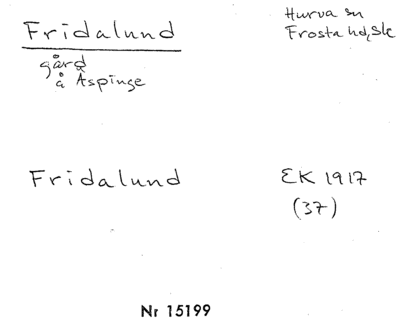 Fridalund
Hurva sn
Frosta hd, Sk
gård
å Äspinge
Fridalund
EK 1917
(37)
Nr 15199